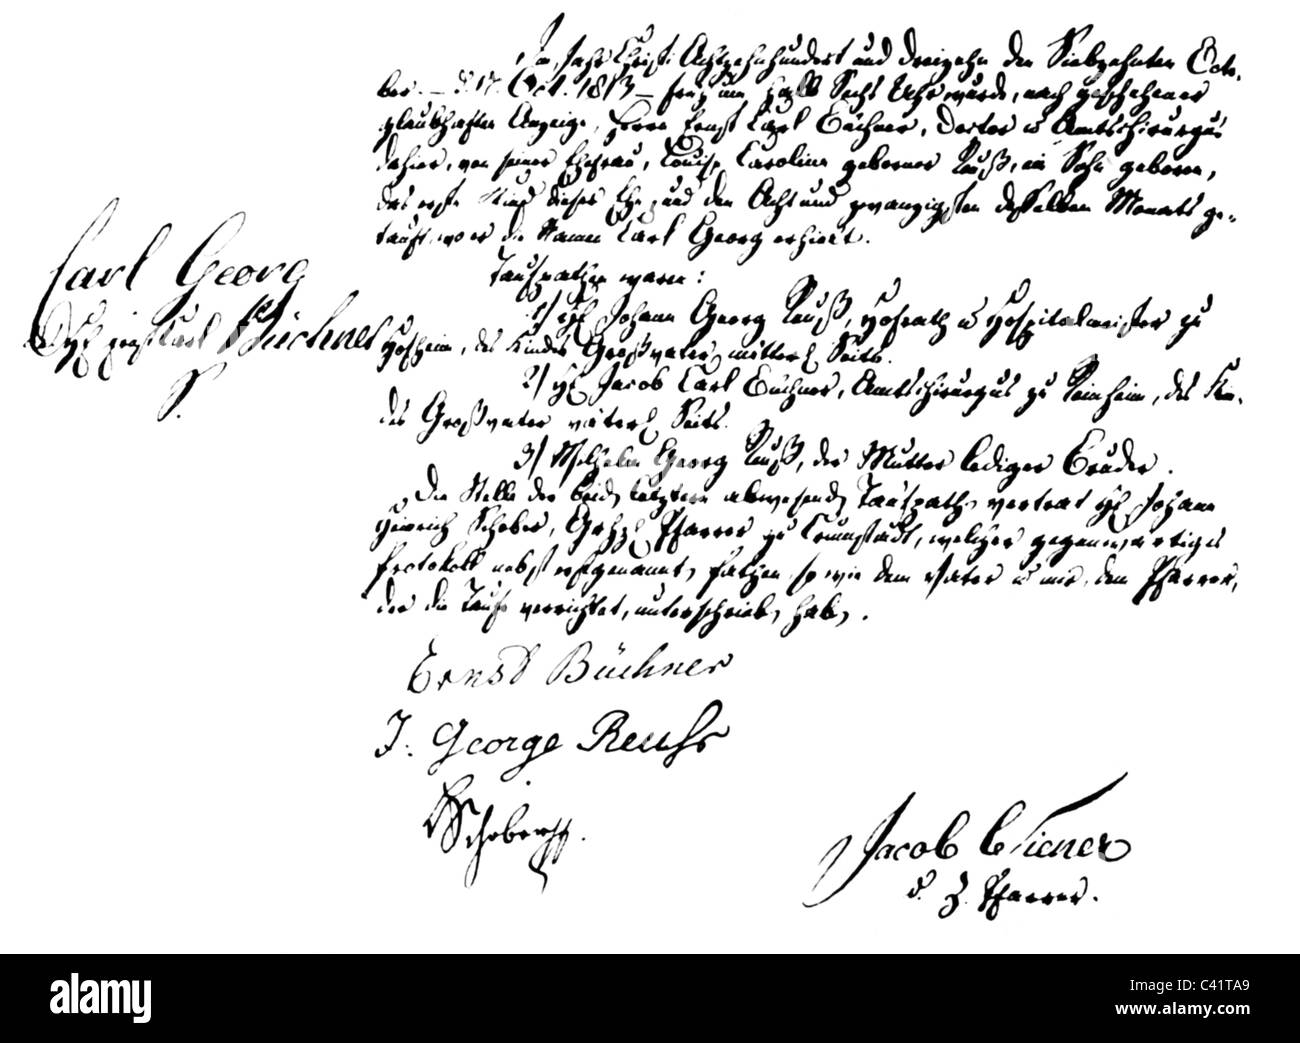 Im Jahr Christi Achtzehnhundert und dreizehn den Siebzehnten Octo-
ber. – d. 17. Oct. 1813 – früh um halb Sechs Uhr wurde, nach geschehener
glaubhafter Anzeige, Herrn Ernst Carl Büchner, Doctor u Amtschirurgus
dahier, von seiner Ehefrau, Louise Caroline geborner Reuß, ein Sohn geboren,
das erste Kind dieser Ehe, und den Acht und zwanzigsten desselben Monats ge-
tauft, wo er die Namen Carl Georg erhielt.
Carl Georg
Büchner
Taufpathen waren:
1) H. Johann Georg Reuß, Hofrath u Hospitalmeister zu
Hofheim, des Kindes Großvater mütterl Seits.
2) H. Jacob Carl Büchner, Amtschirurgus zu Reinheim, des Kin-
des Großvater väterl Seits.
3) Wilhelm Georg Reuß, der Mutter lediger Bruder.
Die Stelle der beiden letztern abwesenden Taufpathen vertrat H. Johann
Heinrich Schober, Pfarrer zu Crumstadt, welcher gegenwärtiges
Protokoll nebst erstgenanntem Pathen, so wie dem Vater u mir, dem Pfarrer,
der die Taufe verrichtet, unterschrieben haben.
Ernst Büchner
J. George Reuß
Schober
Jacob Wiener
d. Z. Pfarrer.
alamy
a
alamy
Image ID: C41TA9
www.alamy.com